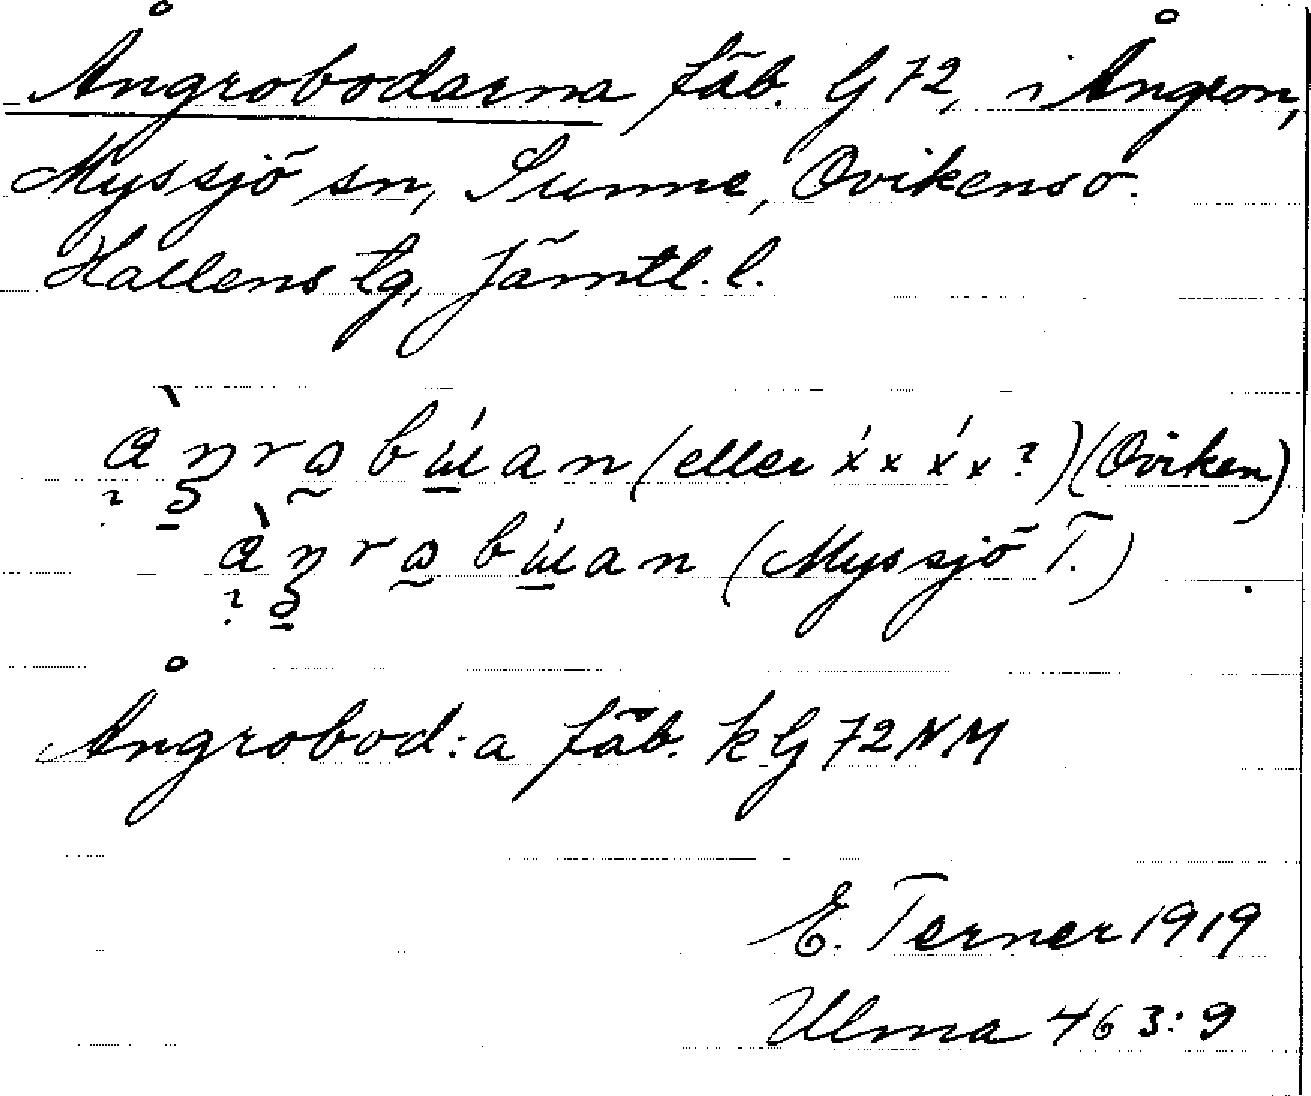 Ångrobodarna fäb. G72, i Ångron,
Myssjö sn, Sunne, Ovikens o.
Hallens tg, Jämtl. l.
(eller x́ x x́ x ?) (Oviken)
(Myssjö T.)
Ångrobod:a fäb. kG72NM
E. Terner 1919
Ulma 463:9